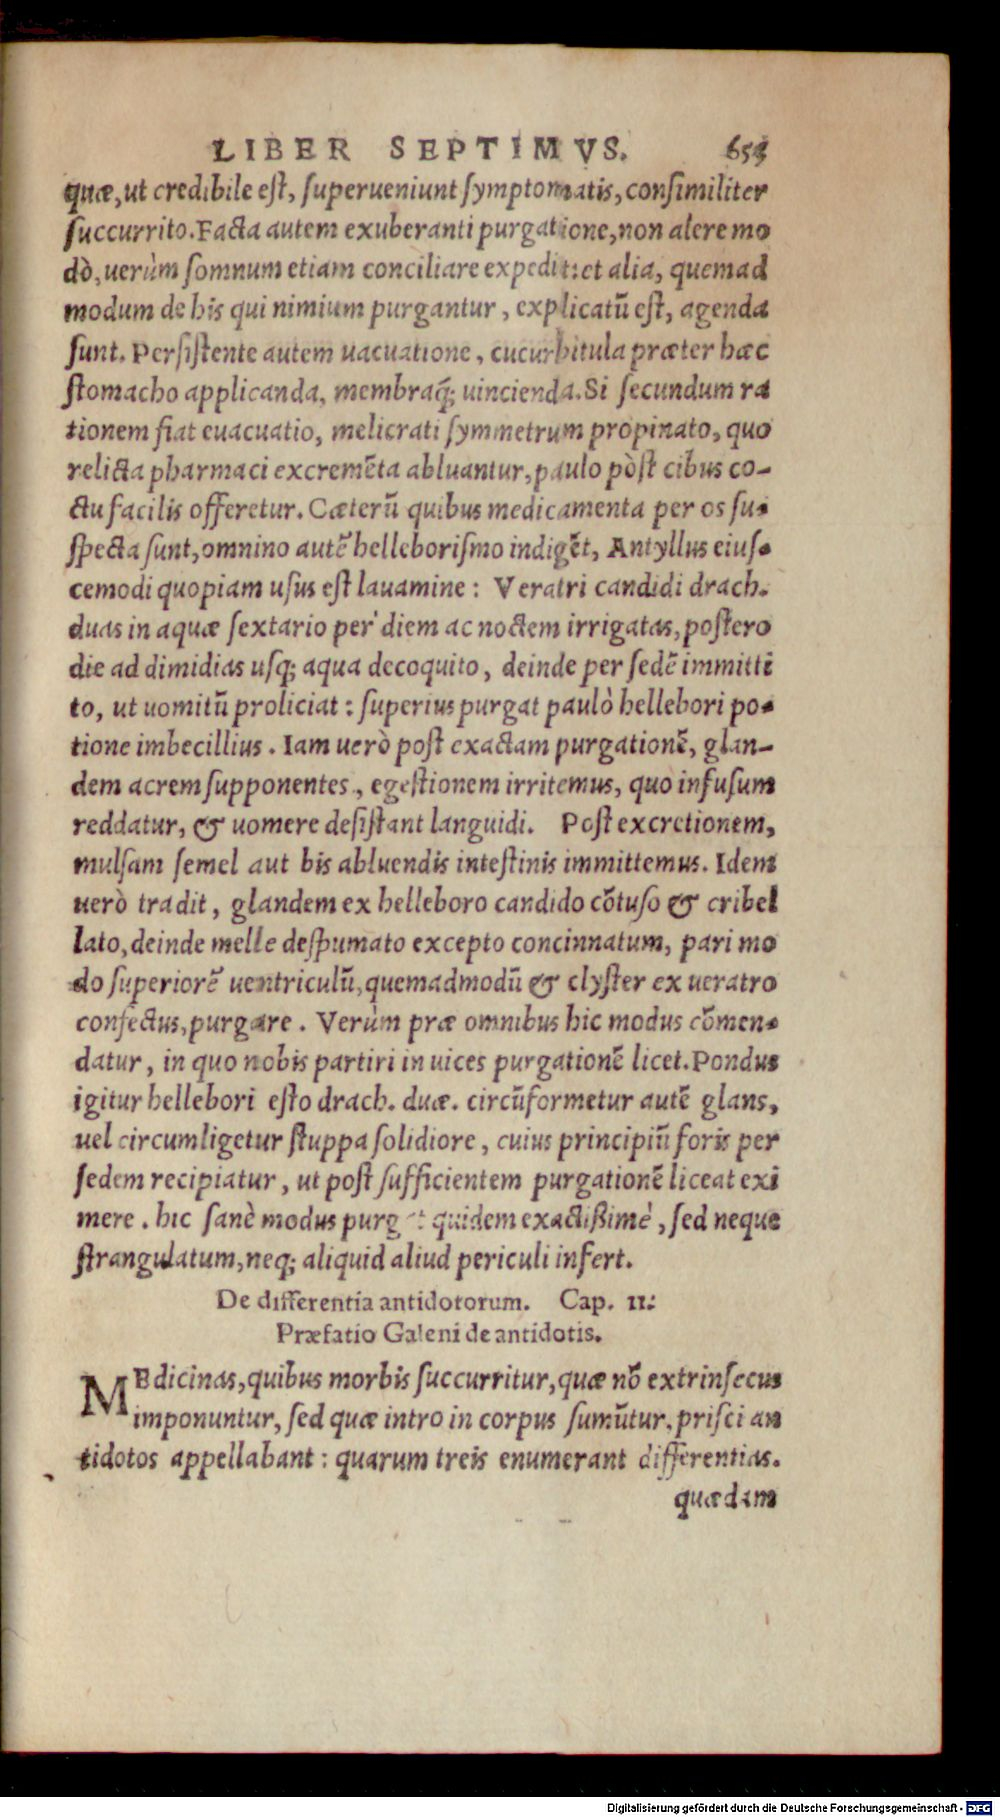 LIBER SEPTIMVS. 653
quæ, ut credibile est, superueniunt symptomatis, consimiliter
succurrito. Facta autem exuberanti purgatione, non alere mo
dò, uerùm somnum etiam conciliare expedit: et alia, quemad
modum de his qui nimium purgantur, explicatũ est, agenda
sunt. Persistente autem uacuatione, cucurbitula præter hæc
stomacho applicanda, membraq́; uincienda. Si secundum ra
tionem fiat euacuatio, melicrati symmetrum propinato, quo
relicta pharmaci excremẽta abluantur, paulo pòst cibus co-
ctu facilis offeretur. Cæterũ quibus medicamenta per os su-
specta sunt, omnino autẽ helleborismo indigẽt, Antyllus eius-
cemodi quopiam usus est lauamine: Veratri candidi drach.
duas in aquæ sextario per diem ac noctem irrigatas, postero
die ad dimidias usq; aqua decoquito, deinde per sedẽ immitti
to, ut uomitũ proliciat: superius purgat paulò hellebori po-
tione imbecillius. Iam uerò post exactam purgationẽ, glan-
dem acrem supponentes, egestionem irritemus, quo infusum
reddatur, & uomere desistant languidi. Post excretionem,
mulsam semel aut bis abluendis intestinis immittemus. Idem
uerò tradit, glandem ex helleboro candido cõtuso & cribel
lato, deinde melle despumato excepto concinnatum, pari mo
do superiorẽ uentriculũ, quemadmodũ & clyster ex ueratro
confectus, purgare. Verùm præ omnibus hic modus cõmen-
datur, in quo nobis partiri in uices purgationẽ licet. Pondus
igitur hellebori esto drach. duæ. circũformetur autẽ glans,
uel circumligetur stuppa solidiore, cuius principiũ foris per
sedem recipiatur, ut post sufficientem purgationẽ liceat exi
mere. hic sanè modus purgat quidem exactißimè, sed neque
strangulatum, neq; aliquid aliud periculi infert.
De differentia antidotorum. Cap. II.
Præfatio Galeni de antidotis.
MEdicinas, quibus morbis succurritur, quæ nõ extrinsecus
imponuntur, sed quæ intro in corpus sumũtur, prisci an
tidotos appellabant: quarum treis enumerant differentias.
quædam
Digitalisierung gefördert durch die Deutsche Forschungsgemeinschaft - DFG